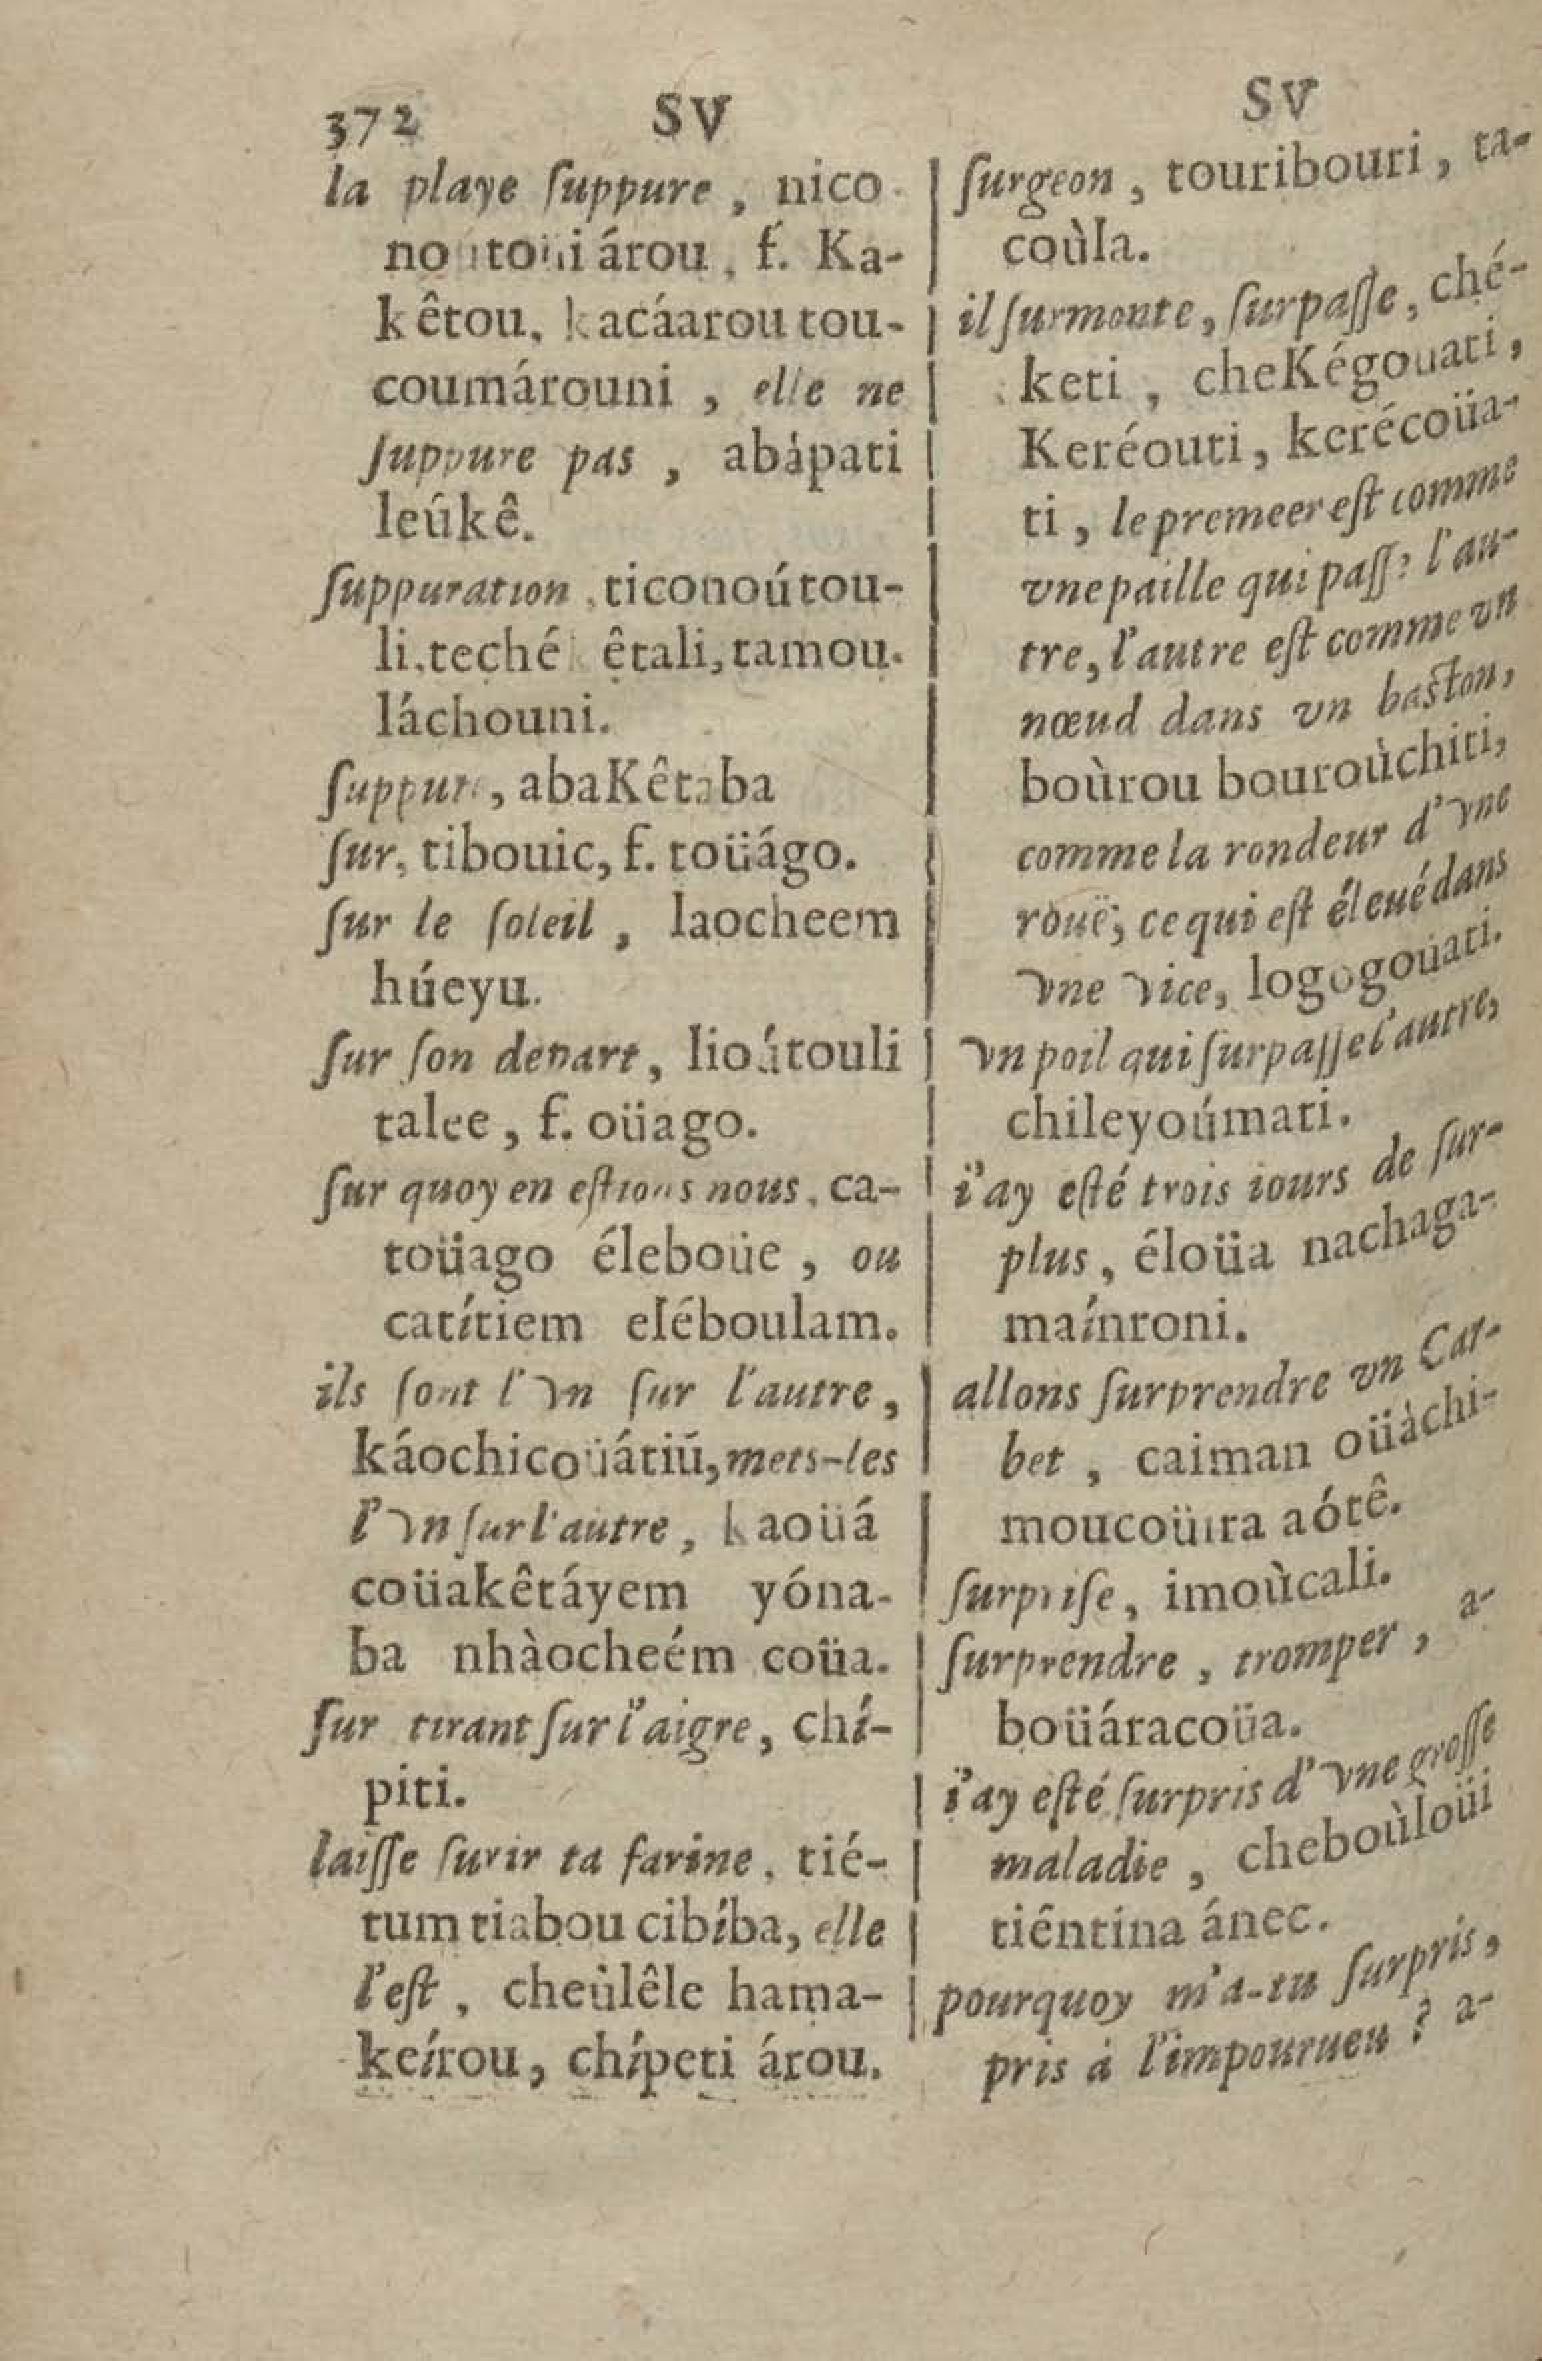 372 SV
la playe ſuppure, nico-
árou, f. Ka-
kêtou, kacáarou tou-
coumárouni, elle ne
ſuppure pas, abápati
leúkê.
ſuppuration, ticonoútou-
li, teché êtali, tamou-
láchouni.
abaKêtaba
ſur, tibouic, f. toüágo.
ſur le ſoleil, laocheem
húeyu.
ſur ſon depart, lioútouli
talee, f. oüago.
ſur quoy en eſtions nous, ca-
toüago éleboüe, ou
catítiem eléboulam.
ils ſont l'vn ſur l'autre,
káochicoüátiú, mets-les
l'vn ſur l'autre, kaoüá
coüakêtáyem yóna-
ba nhàocheém coüa.
ſur tirant ſur l'aigre, chí-
piti.
laiſſe ſurir ta farine, tié-
tum tiabou cibíba, elle
l'eſt, cheùlêle hama-
keírou, chípeti árou.
SV
ſurgeon, touribouri, ta-
coùla.
il ſurmonte, ſurpaſſe, ché-
keti, cheKégouati,
Keréouti, kerécoüa-
ti, le premeer eſt comme
vne paille qui paſſe l'au-
tre, l'autre eſt comme vn
nœud dans vn baſton,
boùrou bouroùchiti,
comme la rondeur d'vne
rouë; ce qui eſt éleué dans
vne vice, logogoúati.
vn poil qui ſurpaſſe l'autre,
chileyoúmati.
i'ay eſté trois iours de ſur-
plus, éloüa nachaga-
maínroni.
allons ſurprendre vn Car-
bet, caiman oüàchi-
moucoüira aótê.
ſurpriſe, imoùcali.
ſurprendre, tromper, a-
boüáracoüa.
i'ay eſté ſurpris d'vne groſſe
maladie, cheboùloüi
tiêntina ánec.
pourquoy m'a-tu ſurpris,
pris à l'impourueu? a-